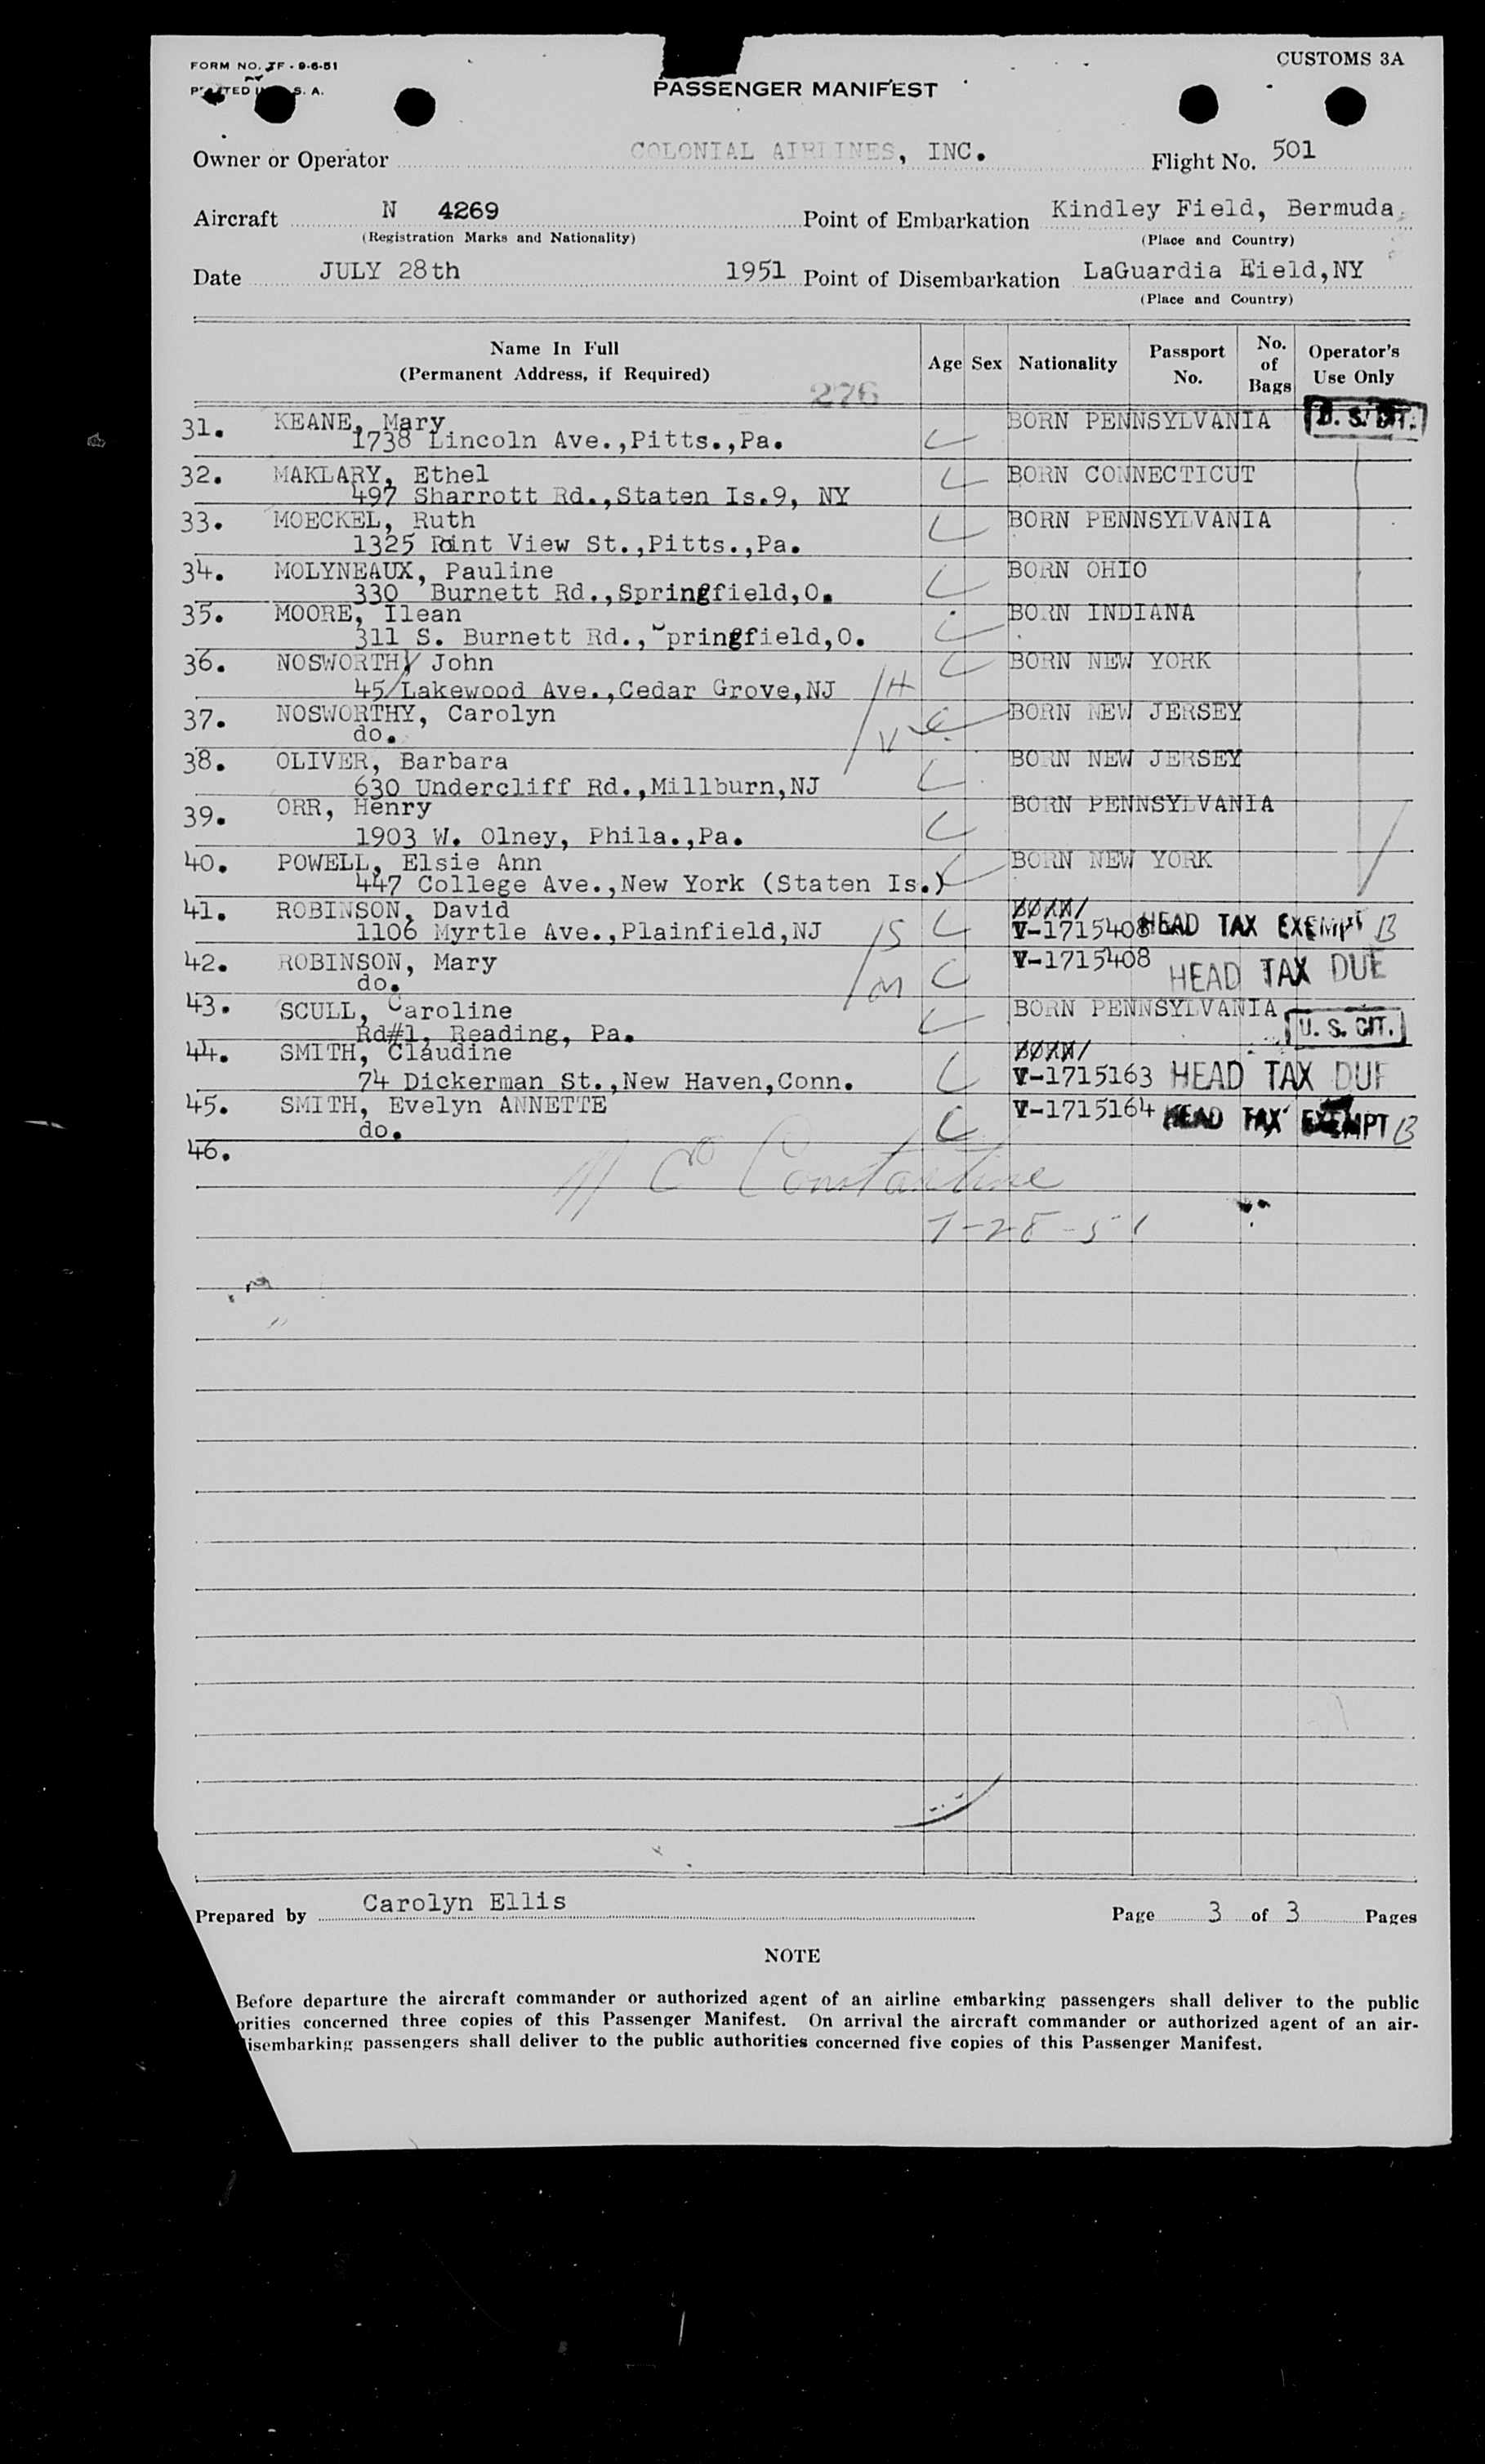 FORM NO. TF - 9-6-51
CUSTOMS 3A
S. A.
PASSENGER MANIFEST
Owner or Operator COLONIAL AIRLINES, INC. Flight No. 501
Aircraft N 4269 Point of Embarkation Kindley Field, Bermuda
(Registration Marks and Nationality) (Place and Country)
Date JULY 28th 1951 Point of Disembarkation LaGuardia Field,NY
(Place and Country)
Name In Full Age Sex Nationality Passport No. No. of Bags Operator's Use Only
(Permanent Address, if Required)
276
31. KEANE, Mary BORN PENNSYLVANIA U. S. CIT.
1738 Lincoln Ave.,Pitts.,Pa.
32. MAKLARY, Ethel BORN CONNECTICUT
497 Sharrott Rd.,Staten Is.9, NY
33. MOECKEL, Ruth BORN PENNSYLVANIA
1325 Point View St.,Pitts.,Pa.
34. MOLYNEAUX, Pauline BORN OHIO
330 Burnett Rd.,Springfield,O.
35. MOORE, Ilean BORN INDIANA
311 S. Burnett Rd.,Springfield,O.
36. NOSWORTHY John BORN NEW YORK
45 Lakewood Ave.,Cedar Grove,NJ /H
37. NOSWORTHY, Carolyn BORN NEW JERSEY
do.
38. OLIVER, Barbara BORN NEW JERSEY
630 Undercliff Rd.,Millburn,NJ
39. ORR, Henry BORN PENNSYLVANIA
1903 W. Olney, Phila.,Pa.
40. POWELL, Elsie Ann BORN NEW YORK
447 College Ave.,New York (Staten Is.)
41. ROBINSON, David BORN
1106 Myrtle Ave.,Plainfield,NJ /S V-1715408 HEAD TAX EXEMPT B
42. ROBINSON, Mary V-1715408 HEAD TAX DUE
do. /M
43. SCULL, Caroline BORN PENNSYLVANIA U. S. CIT.
Rd#1, Reading, Pa.
44. SMITH, Claudine BORN
74 Dickerman St.,New Haven,Conn. V-1715163 HEAD TAX DUE
45. SMITH, Evelyn ANNETTE V-1715164 HEAD TAX EXEMPT B
do.
46.
Constantine
7-28-51
Prepared by Carolyn Ellis Page 3 of 3 Pages
NOTE
Before departure the aircraft commander or authorized agent of an airline embarking passengers shall deliver to the public
orities concerned three copies of this Passenger Manifest. On arrival the aircraft commander or authorized agent of an air-
isembarking passengers shall deliver to the public authorities concerned five copies of this Passenger Manifest.